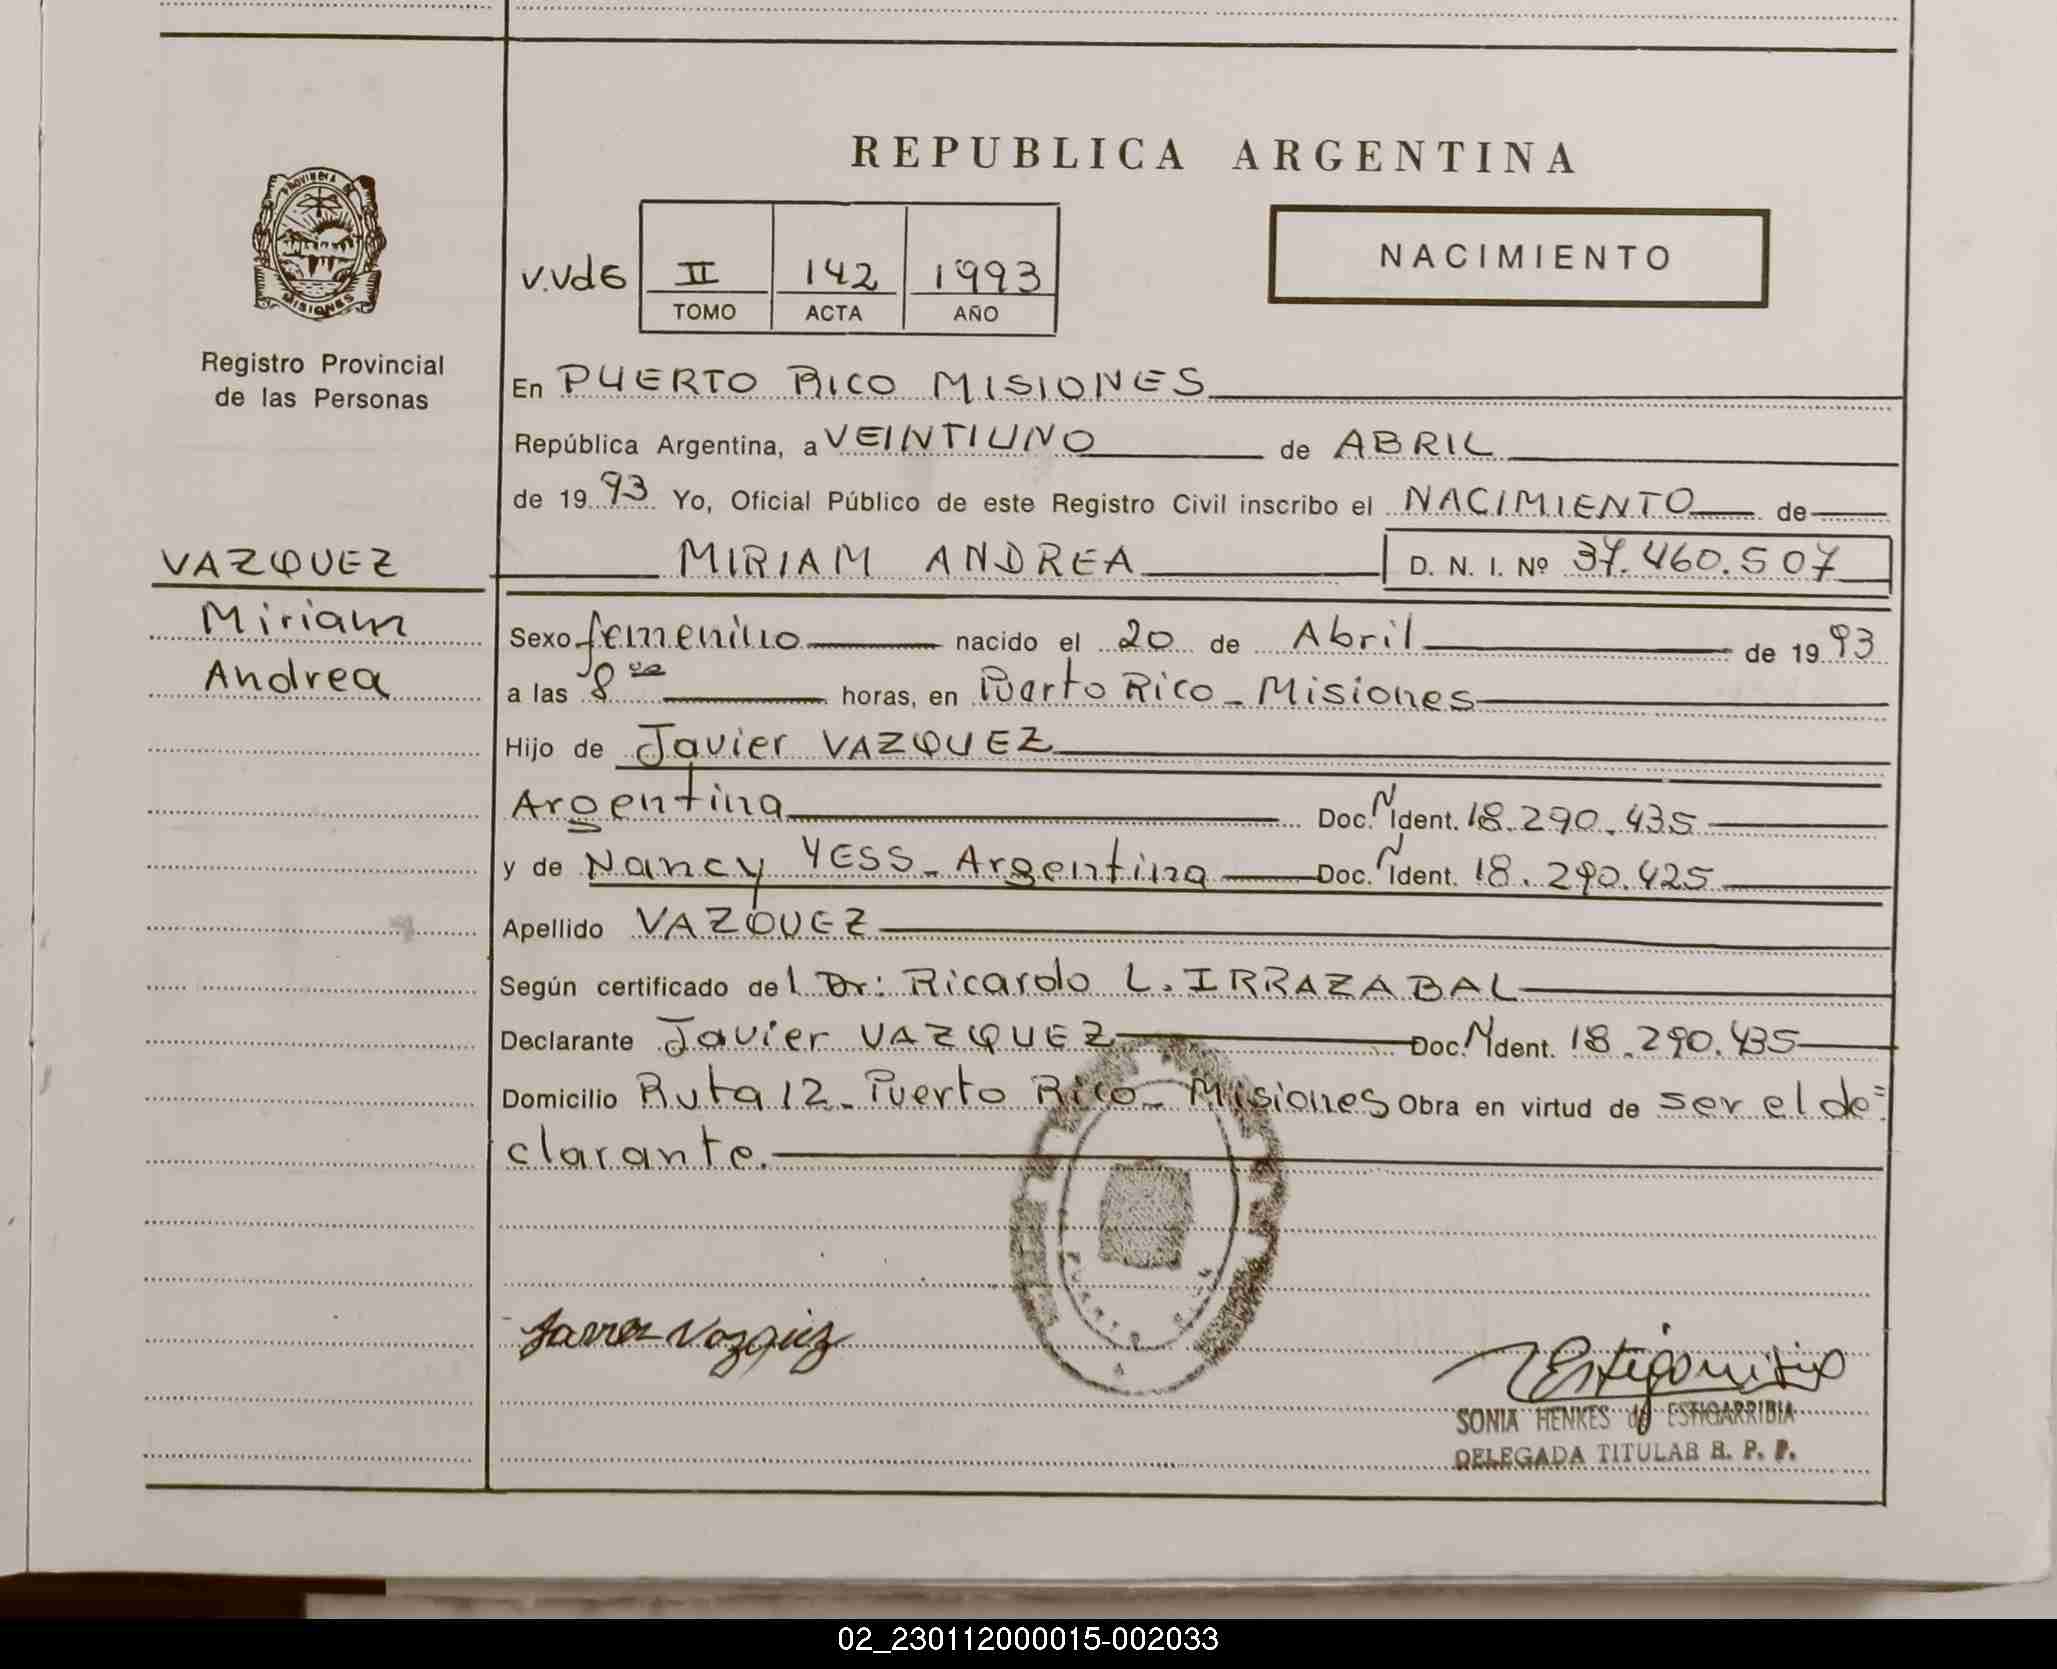 REPUBLICA ARGENTINA
PROVINCIA DE
MISIONES
Registro Provincial
de las Personas
V.Vd6 II 142 1993
TOMO ACTA AÑO
NACIMIENTO
En PUERTO RICO MISIONES
República Argentina, a VEINTIUNO de ABRIL
de 19 93 Yo, Oficial Público de este Registro Civil inscribo el NACIMIENTO de
VAZQUEZ
Miriam
Andrea
MIRIAM ANDREA D. N. I. Nº 37.460.507
Sexo femenino nacido el 20 de Abril de 19 93
a las 8 horas, en Puerto Rico - Misiones
Hijo de Javier VAZQUEZ
Argentina Doc. N Ident. 18.290.435
y de Nancy YESS - Argentina Doc. N Ident. 18.290.425
Apellido VAZQUEZ
Según certificado del Dr: Ricardo L. IRRAZABAL
Declarante Javier VAZQUEZ Doc. N Ident. 18.290.435
Domicilio Ruta 12 - Puerto Rico - Misiones Obra en virtud de ser el de=
clarante.
Javier Vazquez
SONIA HENKES de ESTIGARRIBIA
DELEGADA TITULAR R. P. P.
02_230112000015-002033